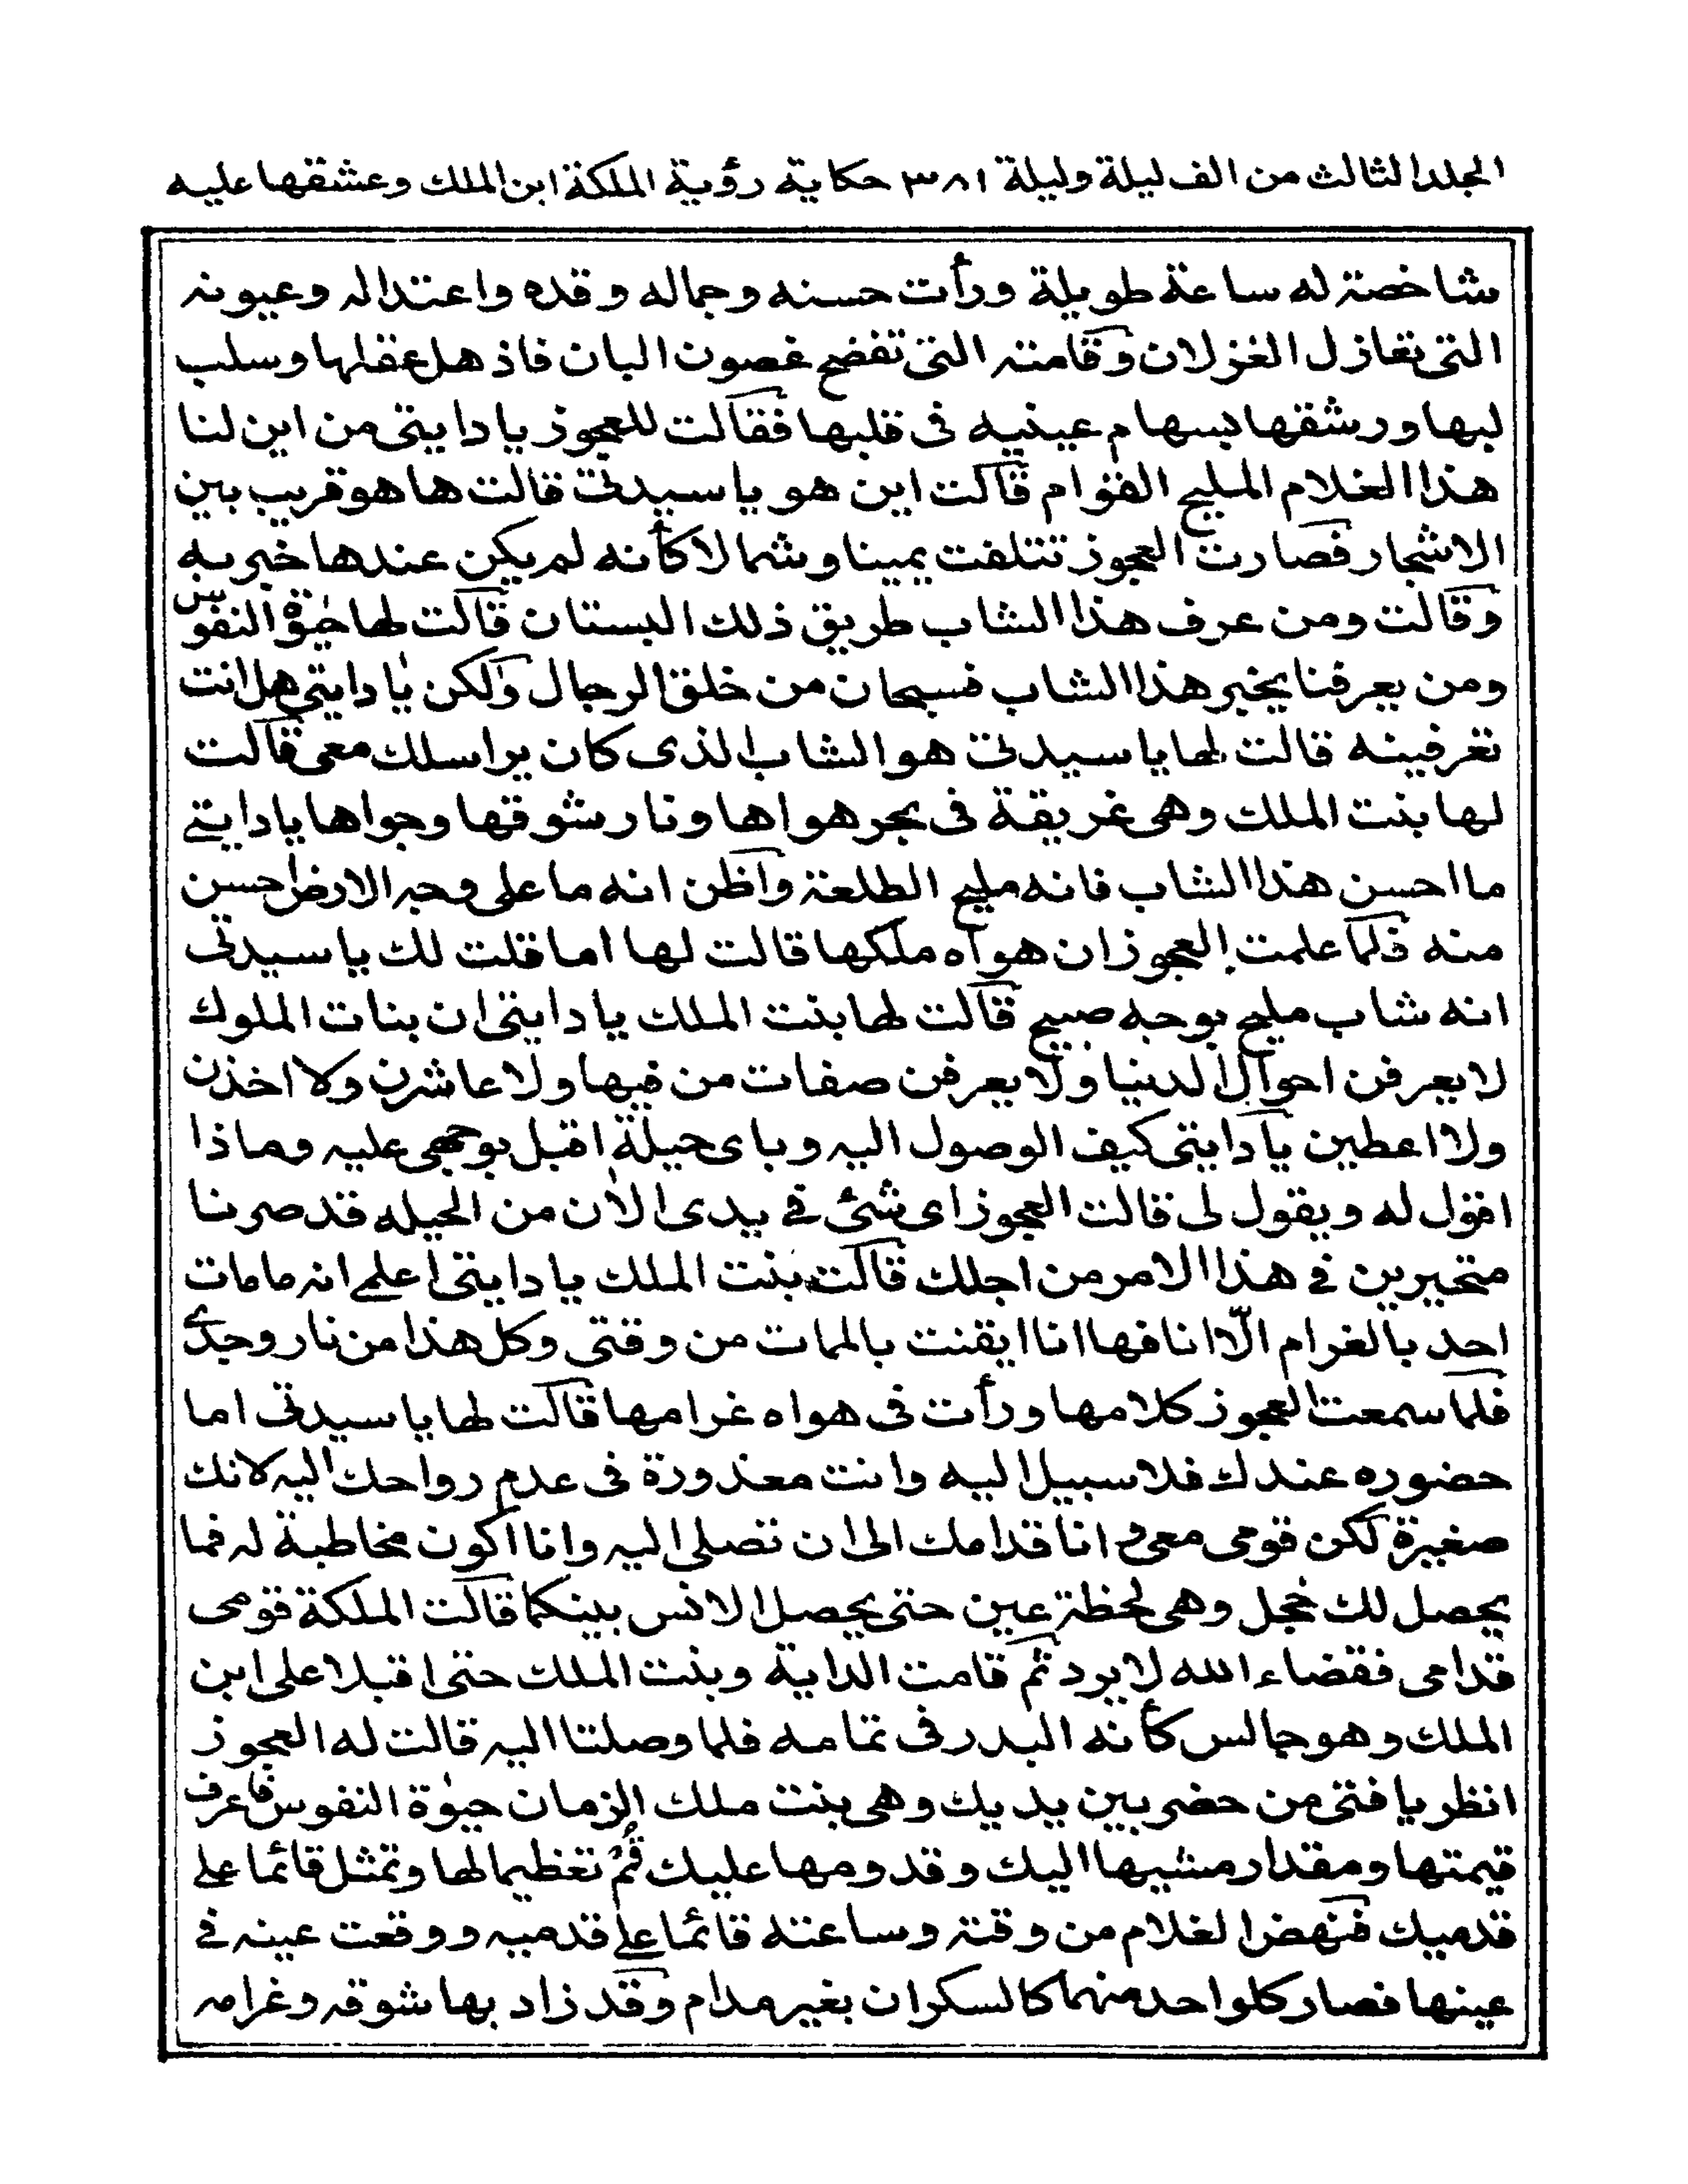 المجلد الثالث من الف ليلة وليلة ٣٨١ حكاية رؤية الملكة ابن الملك وعشقها عليه
شاخصة له ساعة طويلة ورأت حسنه وجماله وقده واعتداله وعيونه
التى تغازل الغزلان وقامته التى تفضح غصون البان فاذهل عقلها وسلب
لبها ورشقها بسهام عينيه فى قلبها فقالت للعجوز يا دايتى من اين لنا
هذا الغلام المليح القوام قالت اين هو يا سيدتى قالت ها هو قريب بين
الاشجار فصارت العجوز تتلفت يمينا وشمالا كأنه لم يكن عندها خبر به
وقالت ومن عرف هذا الشاب طريق ذلك البستان قالت لها حيوٰة النفوس
ومن يعرفنا بخبر هذا الشاب فسبحان من خلق الرجال ولكن يا دايتى هل انت
تعرفينه قالت لها يا سيدتى هو الشاب الذى كان يراسلك معى قالت
لها بنت الملك وهى غريقة فى بحر هواها ونار شوقها وجواها يا دايتى
ما احسن هذا الشاب فانه مليح الطلعة واظن انه ما على وجه الارض احسن
منه فلما علمت العجوز ان هواه ملكها قالت لها اما قلت لك يا سيدتى
انه شاب مليح بوجه صبيح قالت لها بنت الملك يا دايتى ان بنات الملوك
لا يعرفن احوال الدنيا ولا يعرفن صفات من فيها ولا عاشرن ولا اخذن
ولا اعطين يا دايتى كيف الوصول اليه وباى حيلة اقبل بوجهى عليه وماذا
اقول له ويقول لى قالت العجوز اى شئ فى يدى الآن من الحيله قد صرنا
متحيرين فى هذا الامر من اجلك قالت بنت الملك يا دايتى اعلمى انه ما مات
احد بالغرام الّا انا فها انا ايقنت بالممات من وقتى وكل هذا من نار وجدى
فلما سمعت العجوز كلامها ورأت فى هواه غرامها قالت لها يا سيدتى اما
حضوره عندك فلا سبيل اليه وانت معذورة فى عدم رواحك اليه لانك
صغيرة لكن قومى معى وانا قدامك الى ان تصلى اليه وانا اكون مخاطبة له فما
يحصل لك خجل وهى لحظة عين حتى يحصل الانس بينكما قالت الملكة قومى
قدامى فقضاء الله لا يرد ثم قامت الداية وبنت الملك حتى اقبلا على ابن
الملك وهو جالس كأنه البدر فى تمامه فلما وصلتا اليه قالت له العجوز
انظر يا فتى من حضر بين يديك وهى بنت ملك الزمان حيوٰة النفوس فاعرف
قيمتها ومقدار مشيها اليك وقدومها عليك قُمْ تعظيما لها وتمثل قائما على
قدميك فنهض الغلام من وقته وساعته قائما على قدميه ووقعت عينه فى
عينها فصار كلواحد منهما كالسكران بغير مدام وقد زاد بها شوقه وغرامه